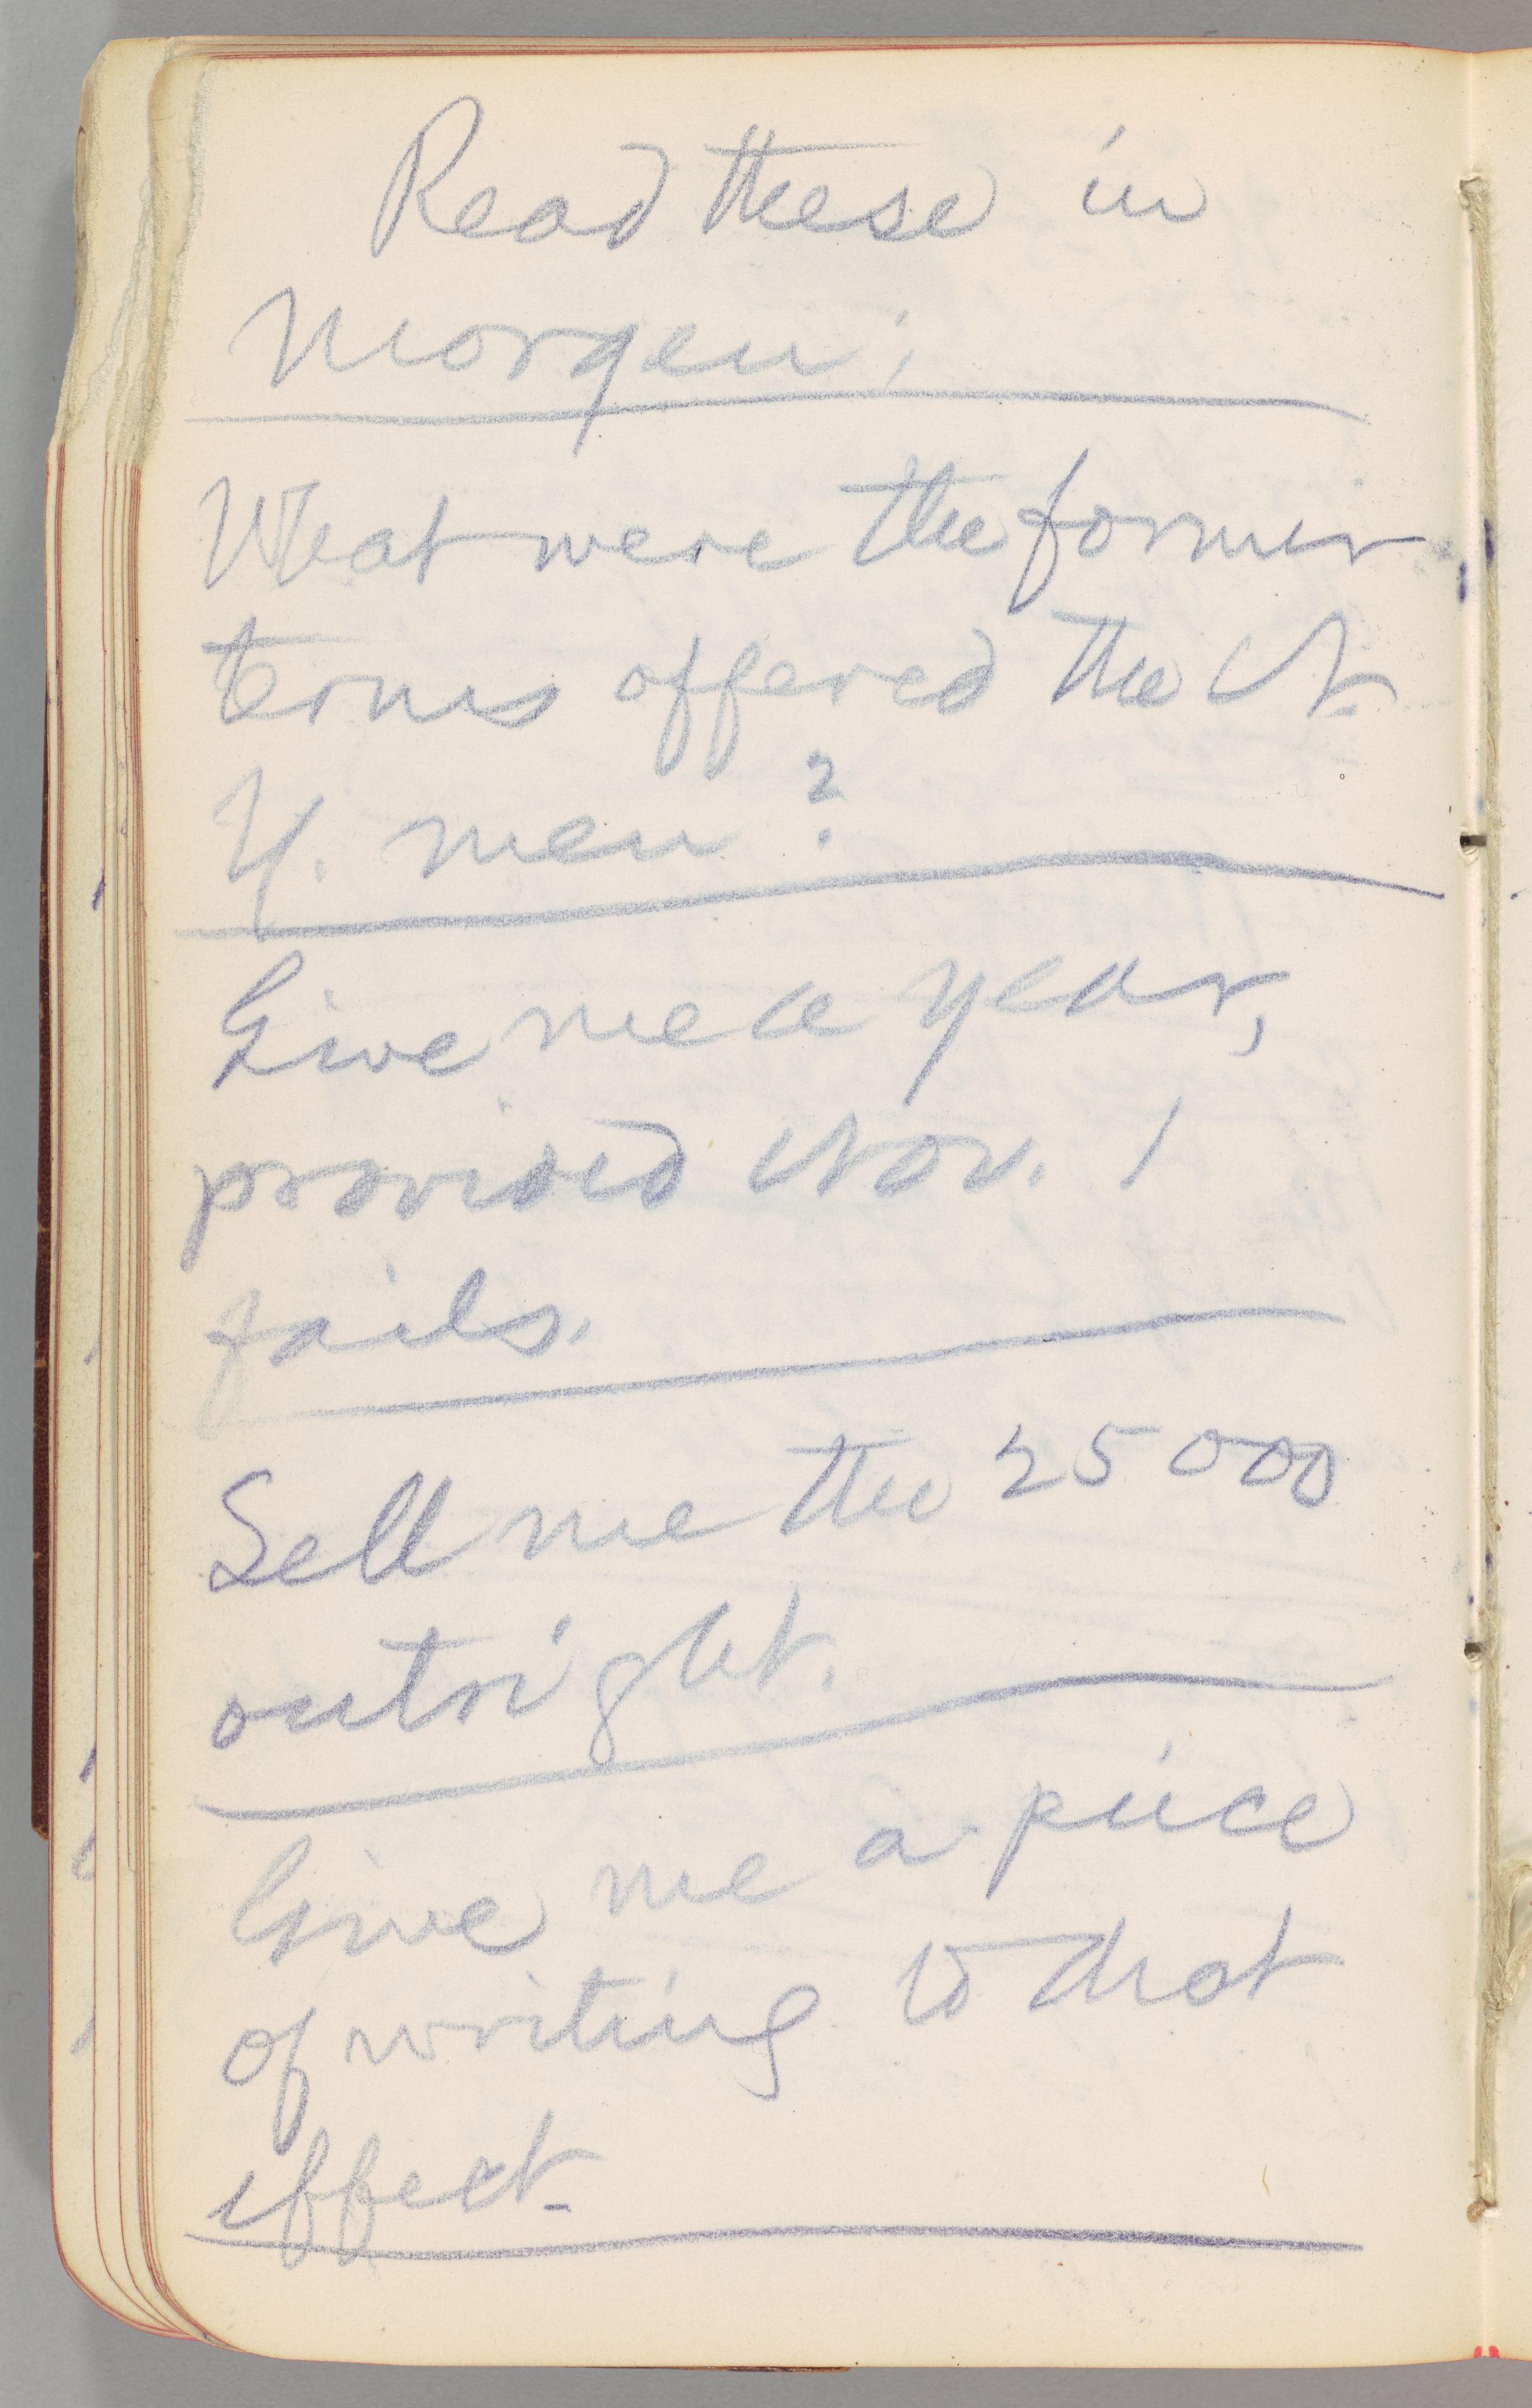 Read these in
Morgen;
What were the former
terms offered the N.
Y. men?
Give me a year,
provided Nov. 1
fails.
Sell me the 25000
outright.
Give me a piece
of writing to that
effect.